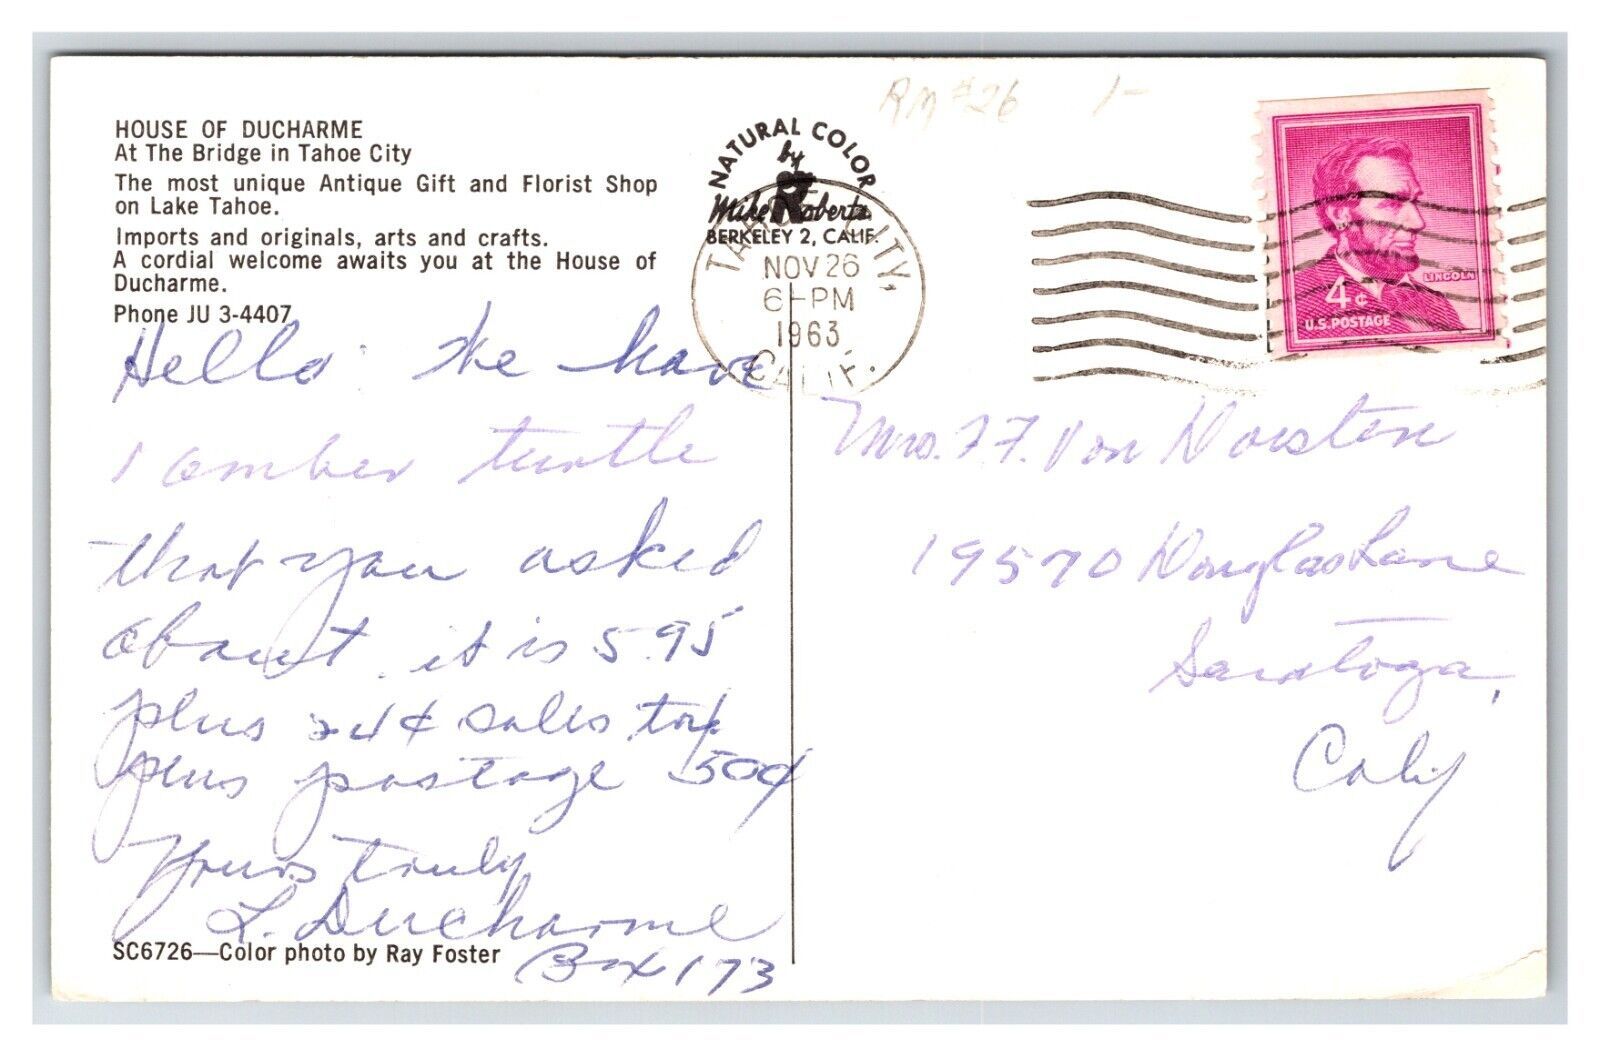 HOUSE OF DUCHARME
At The Bridge in Tahoe City
The most unique Antique Gift and Florist Shop
on Lake Tahoe.
Imports and originals, arts and crafts.
A cordial welcome awaits you at the House of
Ducharme.
Phone JU 3-4407
Hello: We have
1 amber turtle
that you asked
about. it is 5.95
plus 24¢ sales tax
plus postage 50¢
Yours truly
L. Ducharme
Box 173
SC6726—Color photo by Ray Foster
NATURAL COLOR
by
Mike Roberts
BERKELEY 2, CALIF.
TAHOE CITY,
NOV 26
6-PM
1963
CALIF.
#26 1-
LINCOLN
4¢
U.S. POSTAGE
Mrs. F.F. Von
19570 Douglas Lane
Saratoga,
Calif